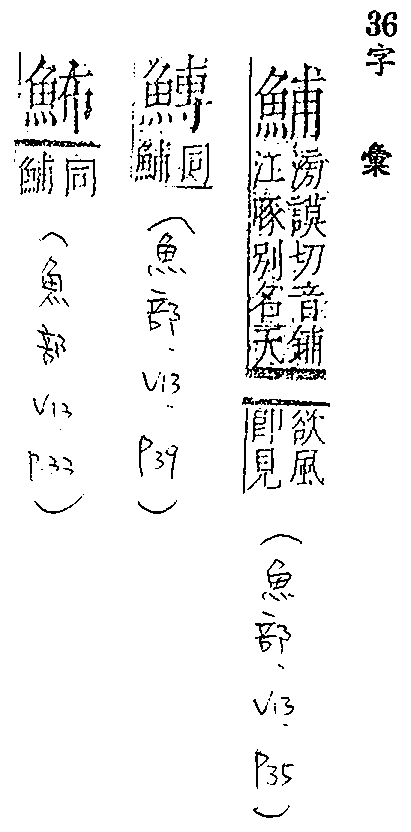 36字彙
鯆
滂謨切音鋪
江豚別名天
欲風
即見
(魚部.V13.P35)
同
鯆
(魚部.V13.P39)
䱛
同
鯆
(魚部V13.P.33)